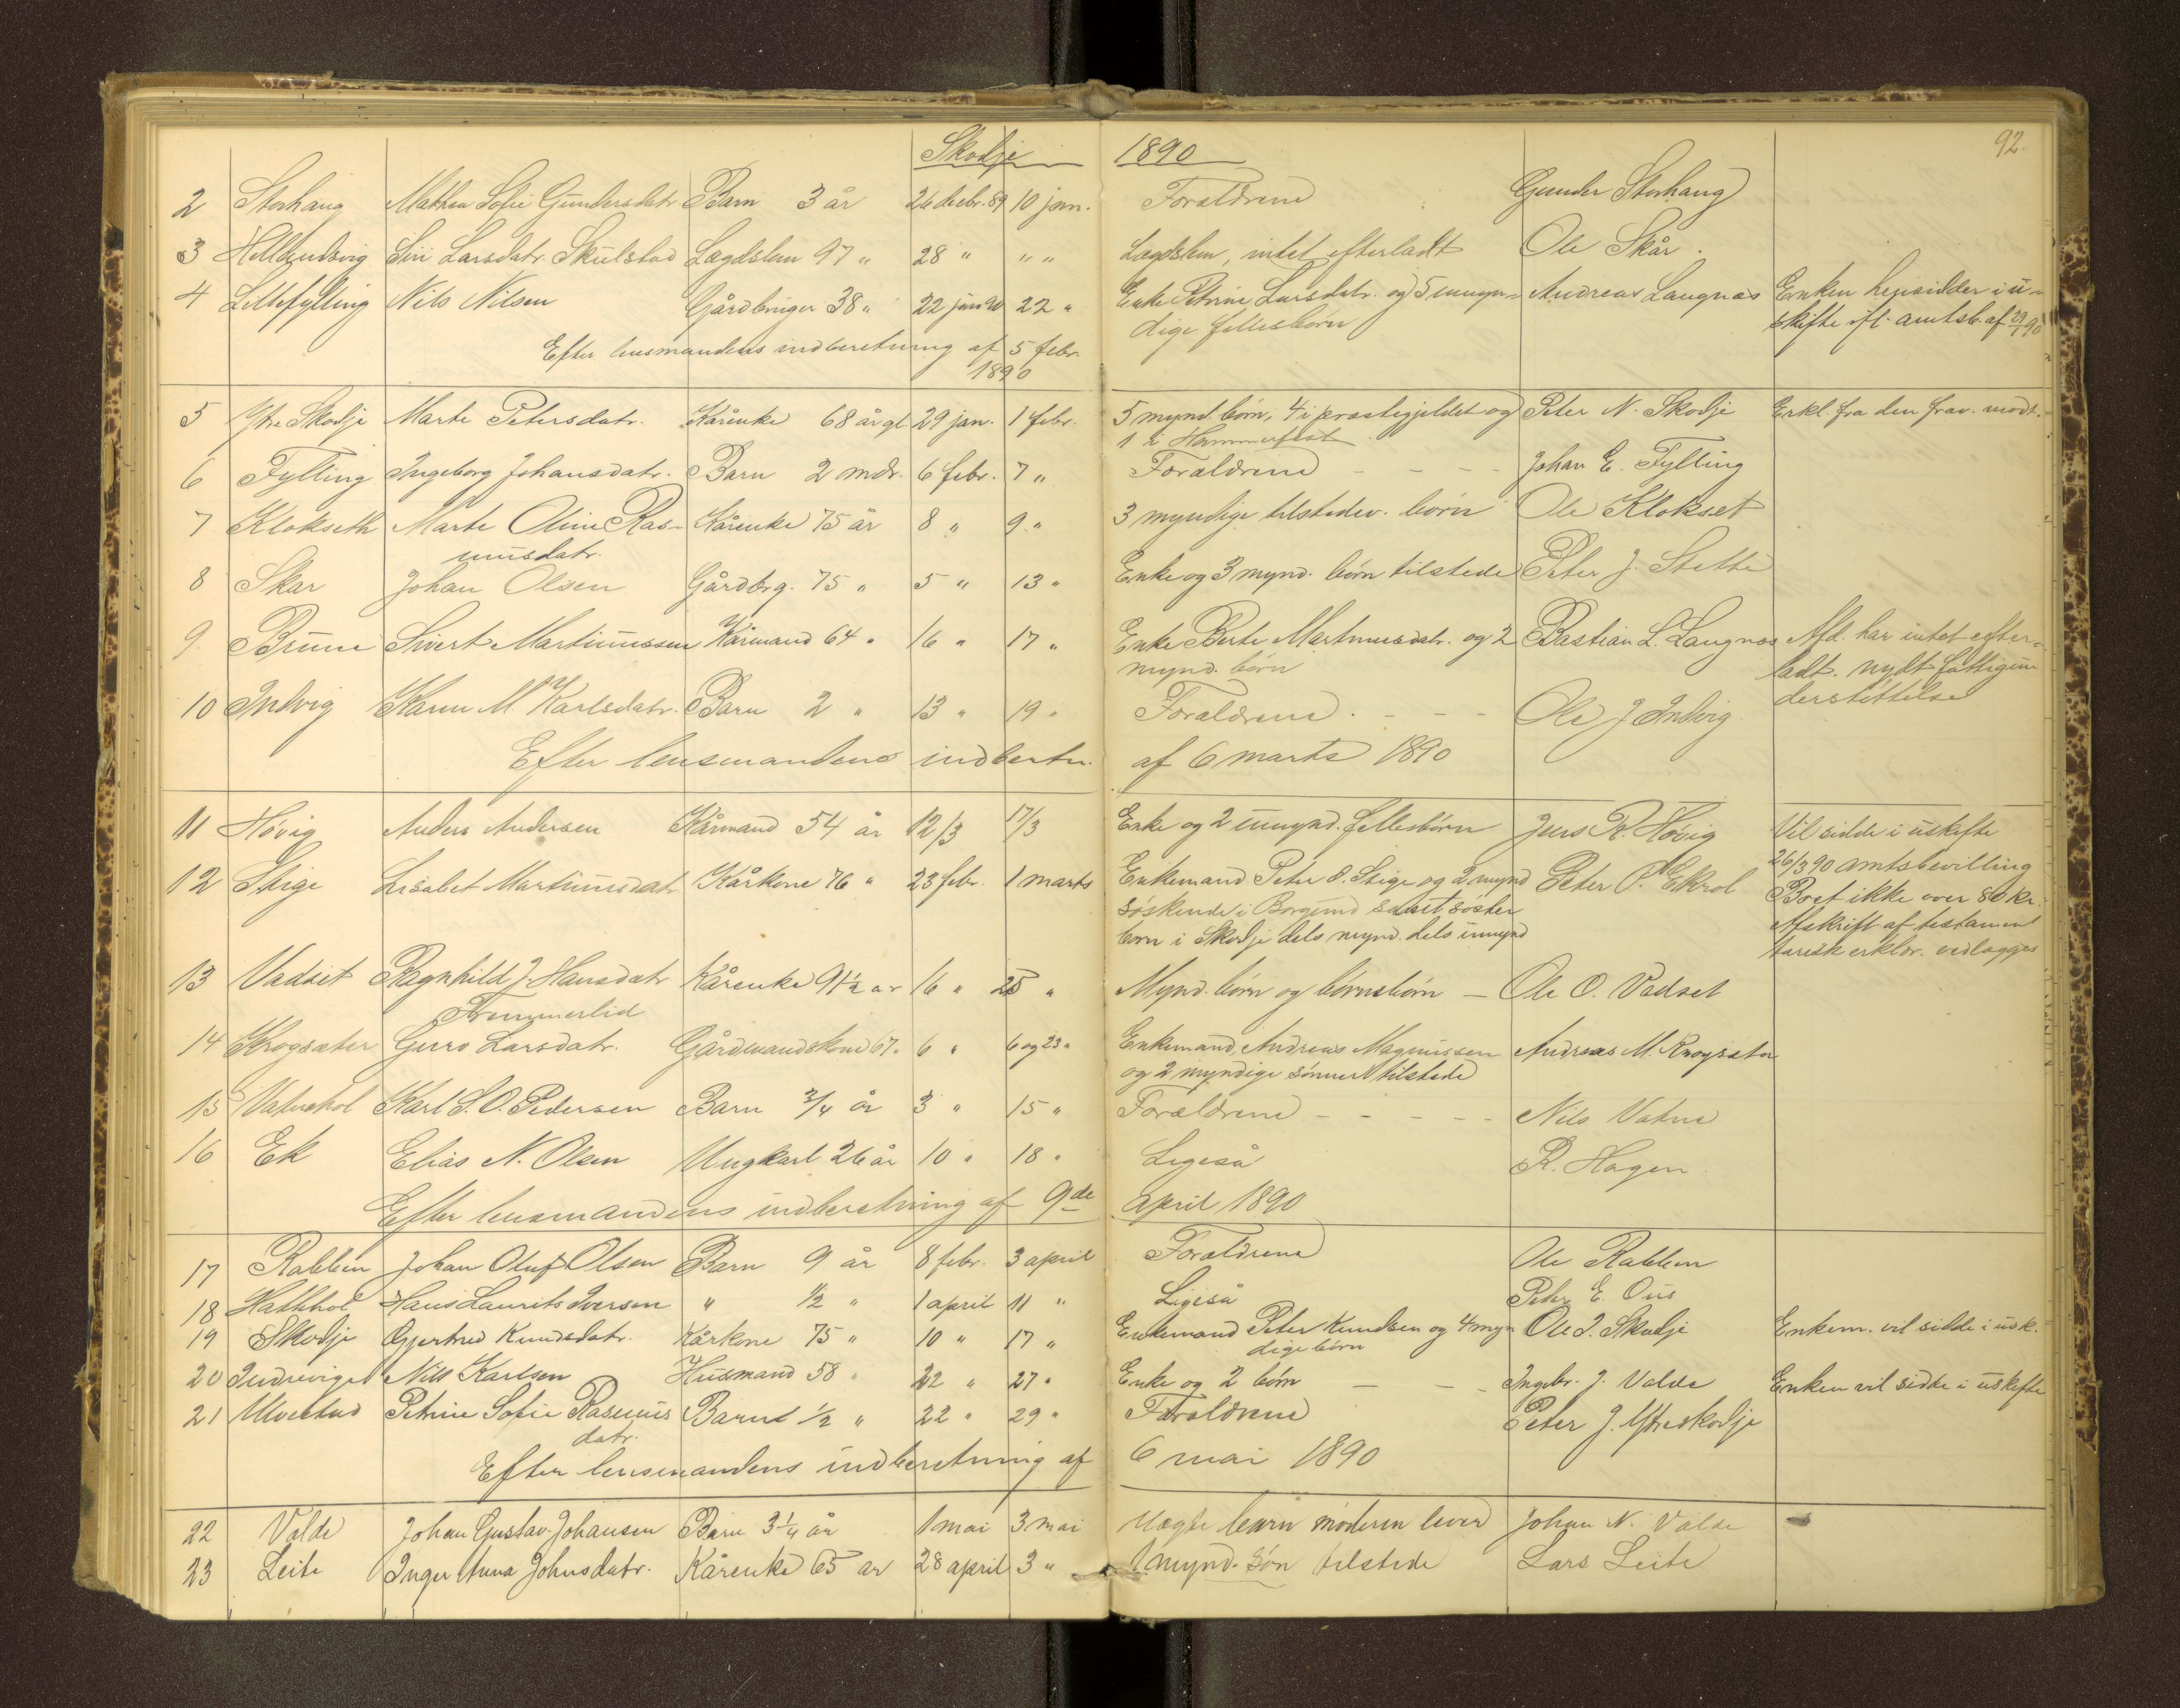 Skodje 1890 92.
2 Storhaug Mathea Sofie Gundersdatr Barn 3 år 26 decbr. 89 10 jan. Forældrene Gunder Storhaug
3 Hellandsvig Siri Larsdatr. Skulstad Lægdslem 97 " 28 " " " Lægdslem, intet efterladt Ole Skår.
4 Lillefylling Nils Nilsen Gårdbruger 38 " 22 jan 90 22 " Enke Petrine Larsdatr. og 5 umyn= Andreas Langnæs Enken hensidder i u=
dige fellesbørn skifte ifl. amtsb. af 29/1 90
Efter lensmandens indberetning af 5 febr.
1890
5 Ytre Skodje Marte Petersdatr. Kårenke 68 år gl. 29 jan. 1 febr. 5 mynd. børn, 4 i præstegjeldet og Peter N. Skodje Erkl. fra den frav. modt.
1 i Hammerfest
6 Fylling Ingeborg Johansdatr. Barn 2 mdr. 6 febr. 7 " Forældrene - - - Johan E. Fylling
7 Klokseth Marte Oline Ras- Kårenke 75 år 8 " 9 " 3 myndige tilstedev. børn Ole Klokset
musdatr.
8 Skar Johan Olsen Gårdbrg. 75 " 5 " 13 " Enke og 3 mynd. børn tilstede Peter J. Stette
9. Brune Sivert Martinussen Kårmand 64 " 16 " 17 " Enke Berte Martinusdatr. og 2 Bastian L. Langnæs Afd. har intet efter=
mynd. børn ladt. nydt fattigun
derstøttelse
10 Indvig Karen M Karlsdatr. Barn 2 " 13 " 19 " Forældrene - - - Ole J Indvig
Efter lensmandens indbertn. af 6 marts 1890
11 Høvig Anders Andersen Kårmand 54 år 12/3 17/3 Enke og 2 umynd. fellesbørn Jens R. Høvig Vil sidde i uskifte
26/3 90 amtsbevilling
12 Stige Lisabet Martinusdatr Kårkone 76 " 23 febr. 1 marts Enkemand Peter O. Stige og 2 mynd Peter P. Ekrol Boet ikke over 80 kr.
søskende i Borgund samt søster Afskrift af testamen
børn i Skodje dels mynd. dels umynd tarisk erklær. vedlægges
13 Vadset Ragnhild J. Hansdatr Kårenke 91½ år 16 " 25 " Mynd. børn og børnebørn - Ole O. Vadset
14 Krogsæter Guro Larsdatr. Gårdmandskone 67 " 6 " 6 og 23 " Enkemand Andreas Magnussen Andreas M. Krogsæter
og 2 myndige sønner tilstede
15 Vatnehol Karl S. O. Pedersen Barn 3/4 år 3 " 15 " Forældrene - - - - - Nils Vatne
16 Ek Elias N. Olsen Ungkarl 26 år 10 " 18 " Ligeså R. Hagen
Efter lensmandens indberetning af 9de april 1890
17 Rabben Johan Oluf Olsen Barn 9 år 8 febr. 3 april Forældrene Ole Rabben
18 Hatthol Hans Laurits Iversen " ½ " 1 april 11 " Ligeså Peter E. Ous
19 Skodje Gjertrud Knudsdatr. Kårkone 75 " 10 " 17 " Enkemand Peter Knudsen og 4 myn Ole I. Skodje Enkem. vil sidde i usk.
dige børn
20 Indreviget Nils Karlsen Husmand 58 " 22 " 27 " Enke og 2 børn - - Ingebr. J. Valde Enken vil sidde i uskifte
21 Ulvestad Petrine Sofie Rasmus Barn ½ " 22 " 29 " Forældrene Peter J. Ytreskodje
datr.
Efter lensmandens indberetning af 6 mai 1890
22 Valde Johan Gustav Johansen Barn 3¼ år 1 mai 3 mai Uægte barn moderen lever Johan N. Valde
23 Leite Inger Anna Johnsdatr. Kårenke 65 år 28 april 3 " 1 mynd. søn tilstede Lars Leite